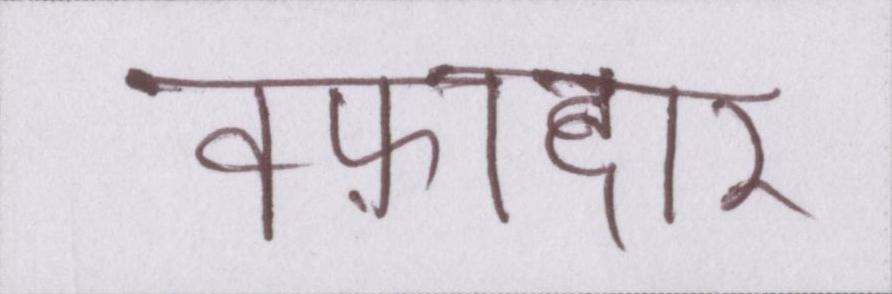 वफ़ादार